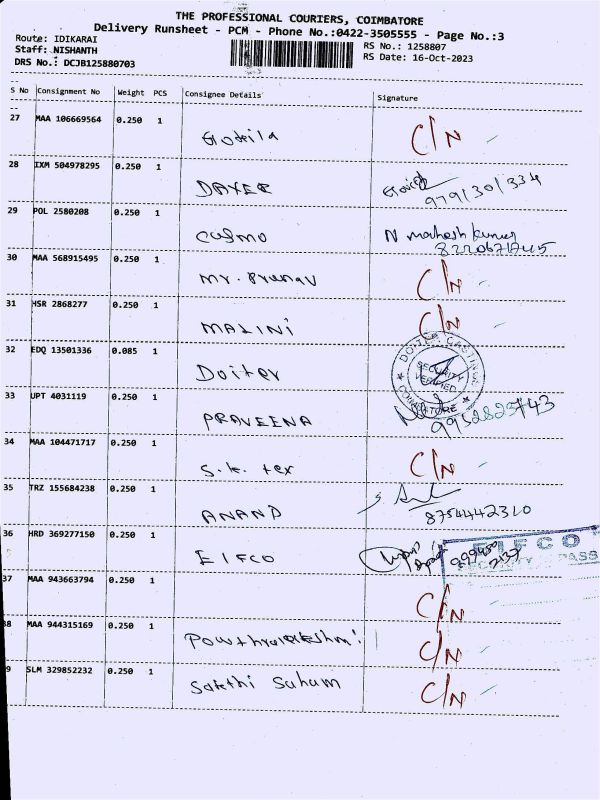 THE PROFESSIONAL COURIERS, COIMBATORE
Delivery Runsheet - PCM - Phone No.:0422-3505555 - Page No.:3
Route: IDIKARAI
RS No.: 1258807
Staff: NISHANTH
RS Date: 16-Oct-2023
DRS No.: DCJB125880703
S No Consignment No Weight PCS Consignee Details Signature
27 MAA 106669564 0.250 1
C/N
28 IXM 504978295 0.250 1
29 POL 2580208 0.250 1
Cosmo N mahesh kumar
30 MAA 568915495 0.250 1
Mr. Pranav C/N
31 HSR 2868277 0.250 1
MALINI C/N
32 EDQ 13501336 0.085 1
Doiter
DOITER CASTING
SECURITY
VERIFIED
COIMBATORE
33 UPT 4031119 0.250 1
PRAVEENA
34 MAA 104471717 0.250 1
S.K. tex C/N
35 TRZ 155684238 0.250 1
ANAND 8754442310
36 HRD 369277150 0.250 1
EIFCO
EIFCO
37 MAA 943663794 0.250 1
C/N
38 MAA 944315169 0.250 1
C/N
9 SLM 329852232 0.250 1
Sakthi Suham C/N